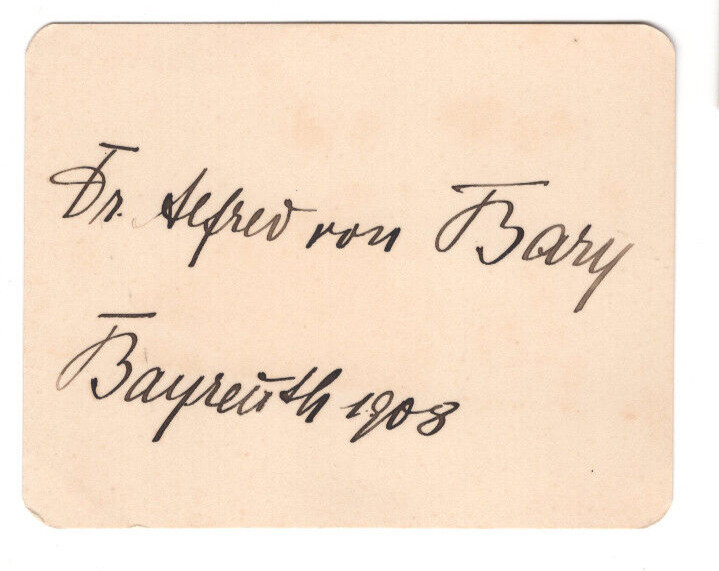 Dr. Alfred von Bary
Bayreuth 1908